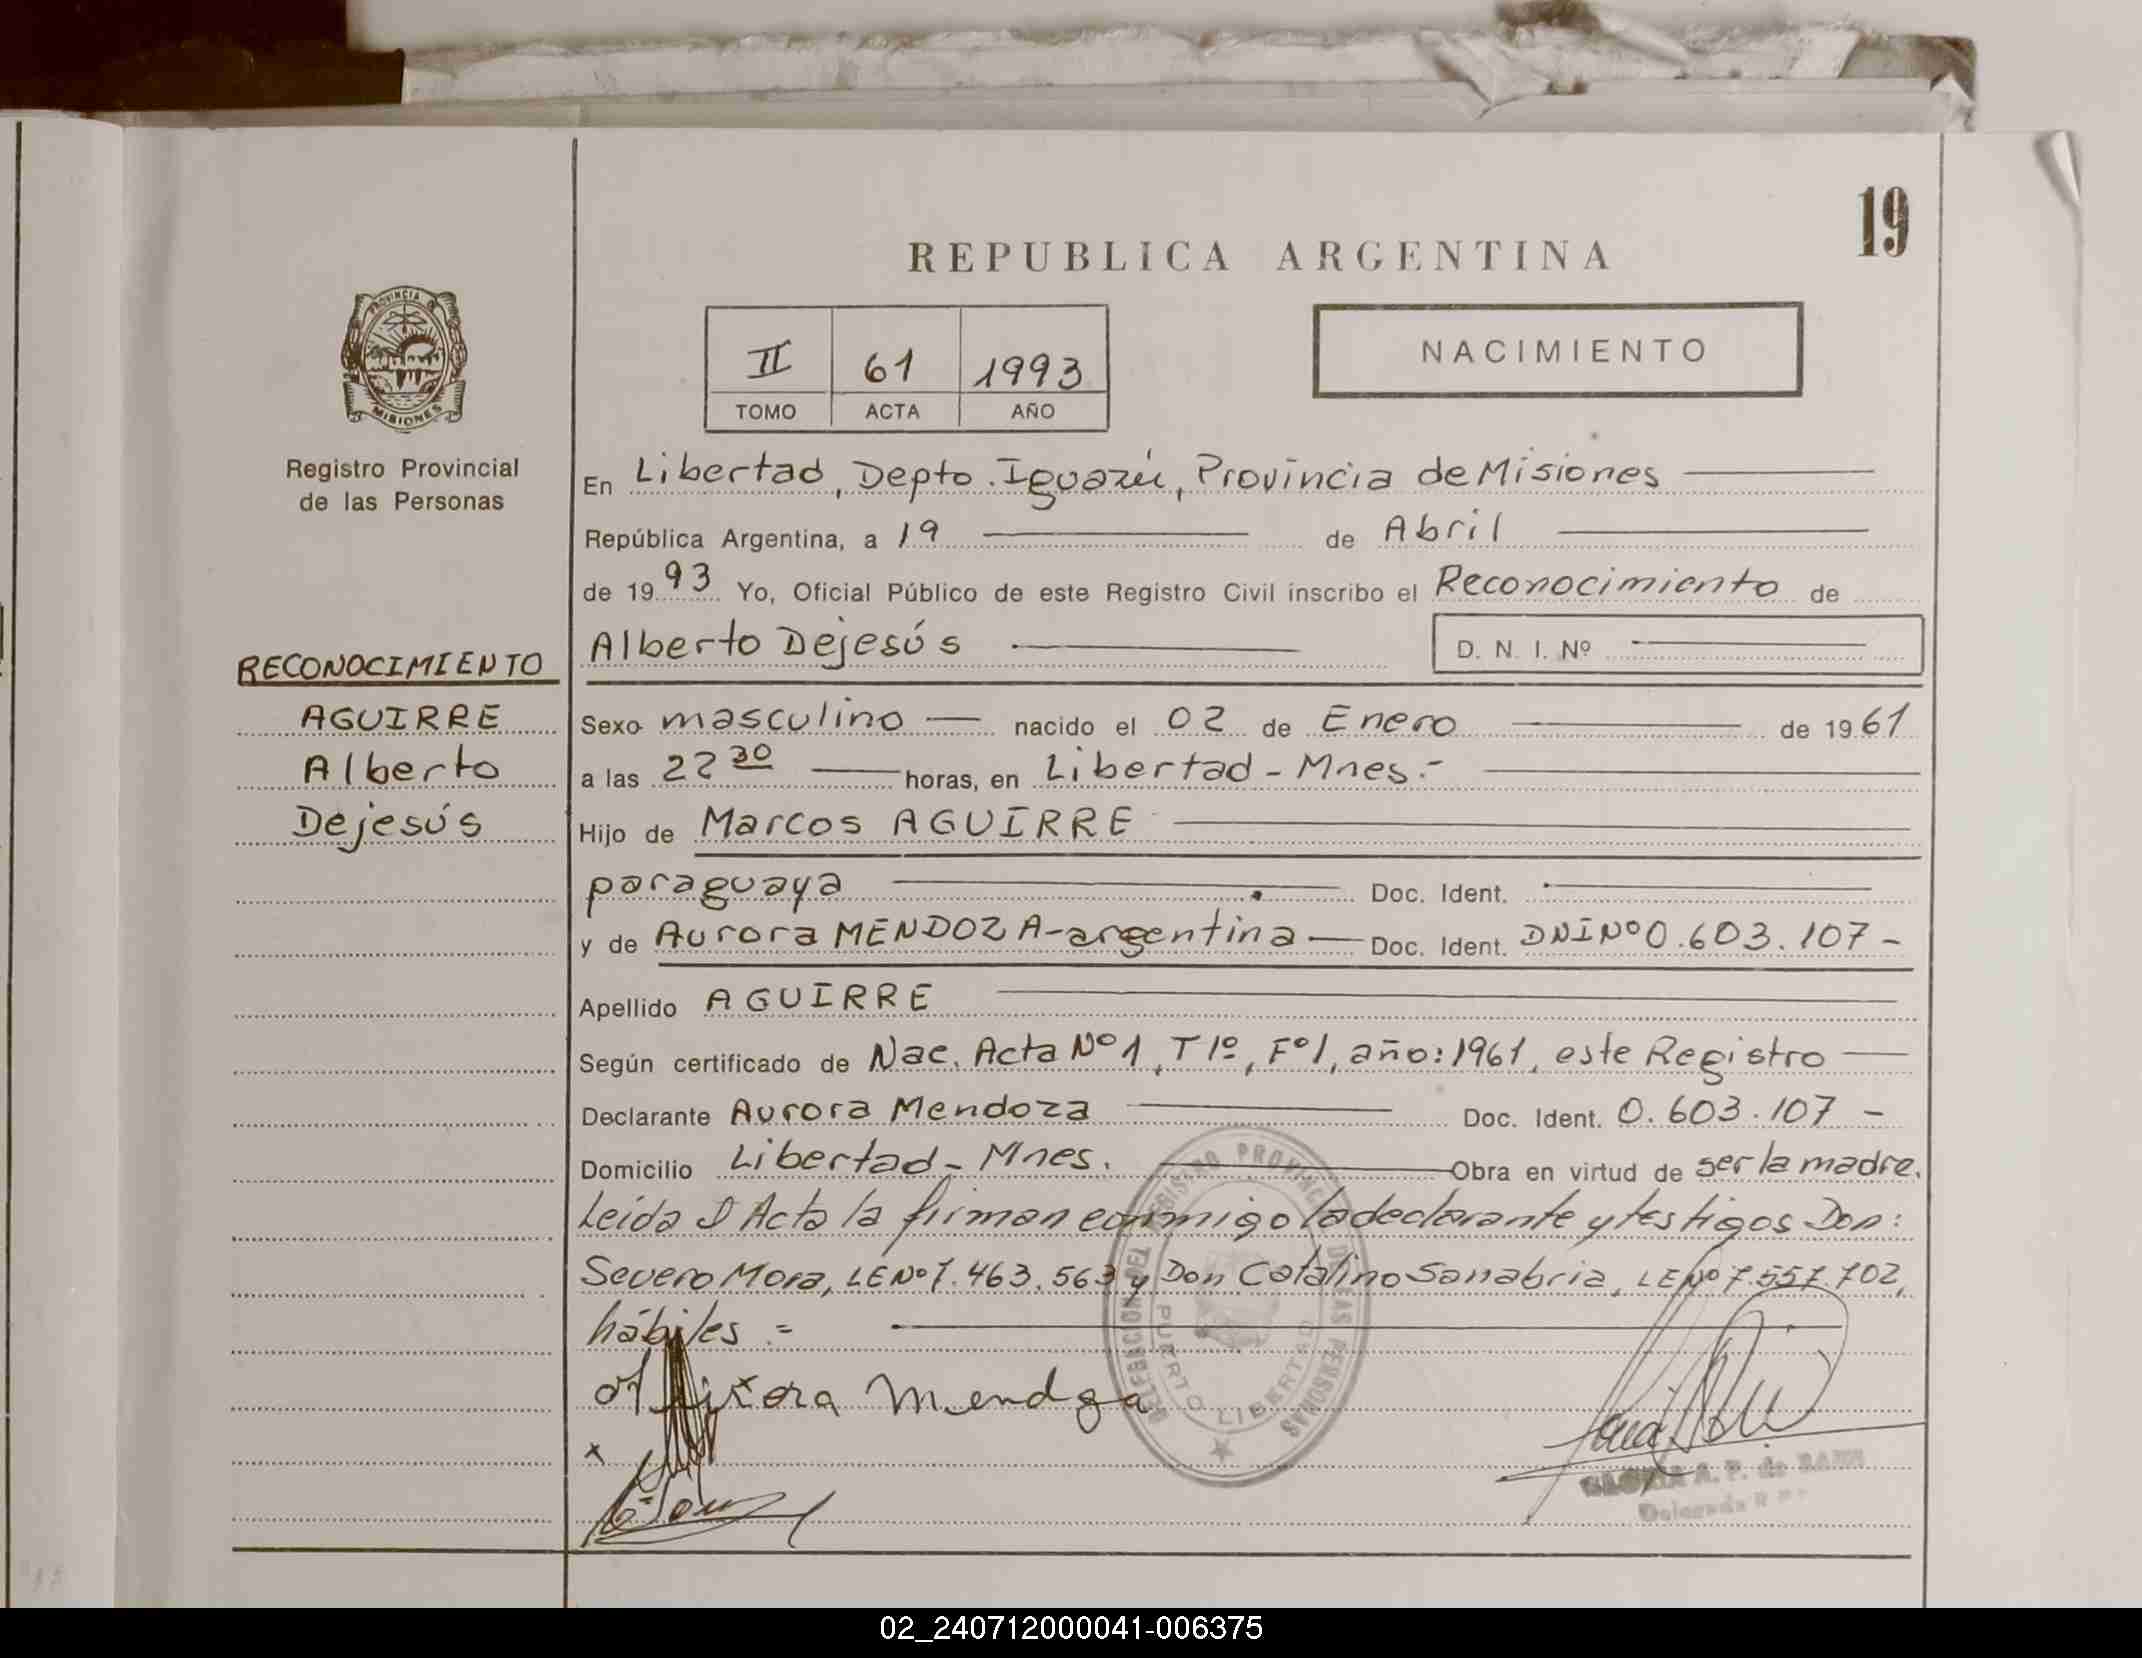 19
REPUBLICA ARGENTINA
PROVINCIA DE
MISIONES
Registro Provincial
de las Personas
II 61 1993
TOMO ACTA AÑO
NACIMIENTO
En Libertad, Depto. Iguazú, Provincia de Misiones
República Argentina, a 19 de Abril
de 1993 Yo, Oficial Público de este Registro Civil inscribo el Reconocimiento de
Alberto Dejesús D. N. I. Nº
RECONOCIMIENTO
AGUIRRE
Alberto
Dejesús
Sexo masculino nacido el 02 de Enero de 1961
a las 22 30 horas, en Libertad - Mnes.-
Hijo de Marcos AGUIRRE
paraguaya Doc. Ident.
y de Aurora MENDOZA-argentina Doc. Ident. DNI Nº 0.603.107-
Apellido AGUIRRE
Según certificado de Nac. Acta Nº 1, T 1º, Fº 1, año: 1961, este Registro
Declarante Aurora Mendoza Doc. Ident. 0.603.107 -
Domicilio Libertad - Mnes. Obra en virtud de ser la madre.
Leída Acta la firman conmigo la declarante y testigos Don:
Severo Mora, LE Nº 7.463.563 y Don Catalino Sanabria, LE Nº 7.557.702,
hábiles.=
DELEGACION DEL REGISTRO PROVINCIAL DE LAS PERSONAS
PUERTO LIBERTAD
Mendoza
x
A. P. de
Delegada
02_240712000041-006375